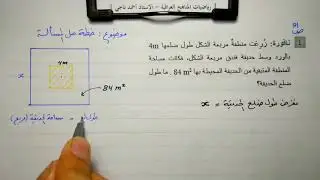 رياضيات المناهج العراقية - الاستاذ أحمد ناجي
موضوع: خطة حل المسألة
نافورة: زُرعت منطقةٌ مربعة الشكل طول ضلعها 4m
وسط حديقة فندق مربعة الشكل، فكانت مساحة
المنطقة المتبقية من الحديقة المحيطة بها 84 m² . ما طول
ضلع الحديقة؟
1
ص
4m
x
84 m²
نفرض طول ضلع الحديقة = x
مساحة الحديقة (مربع) =